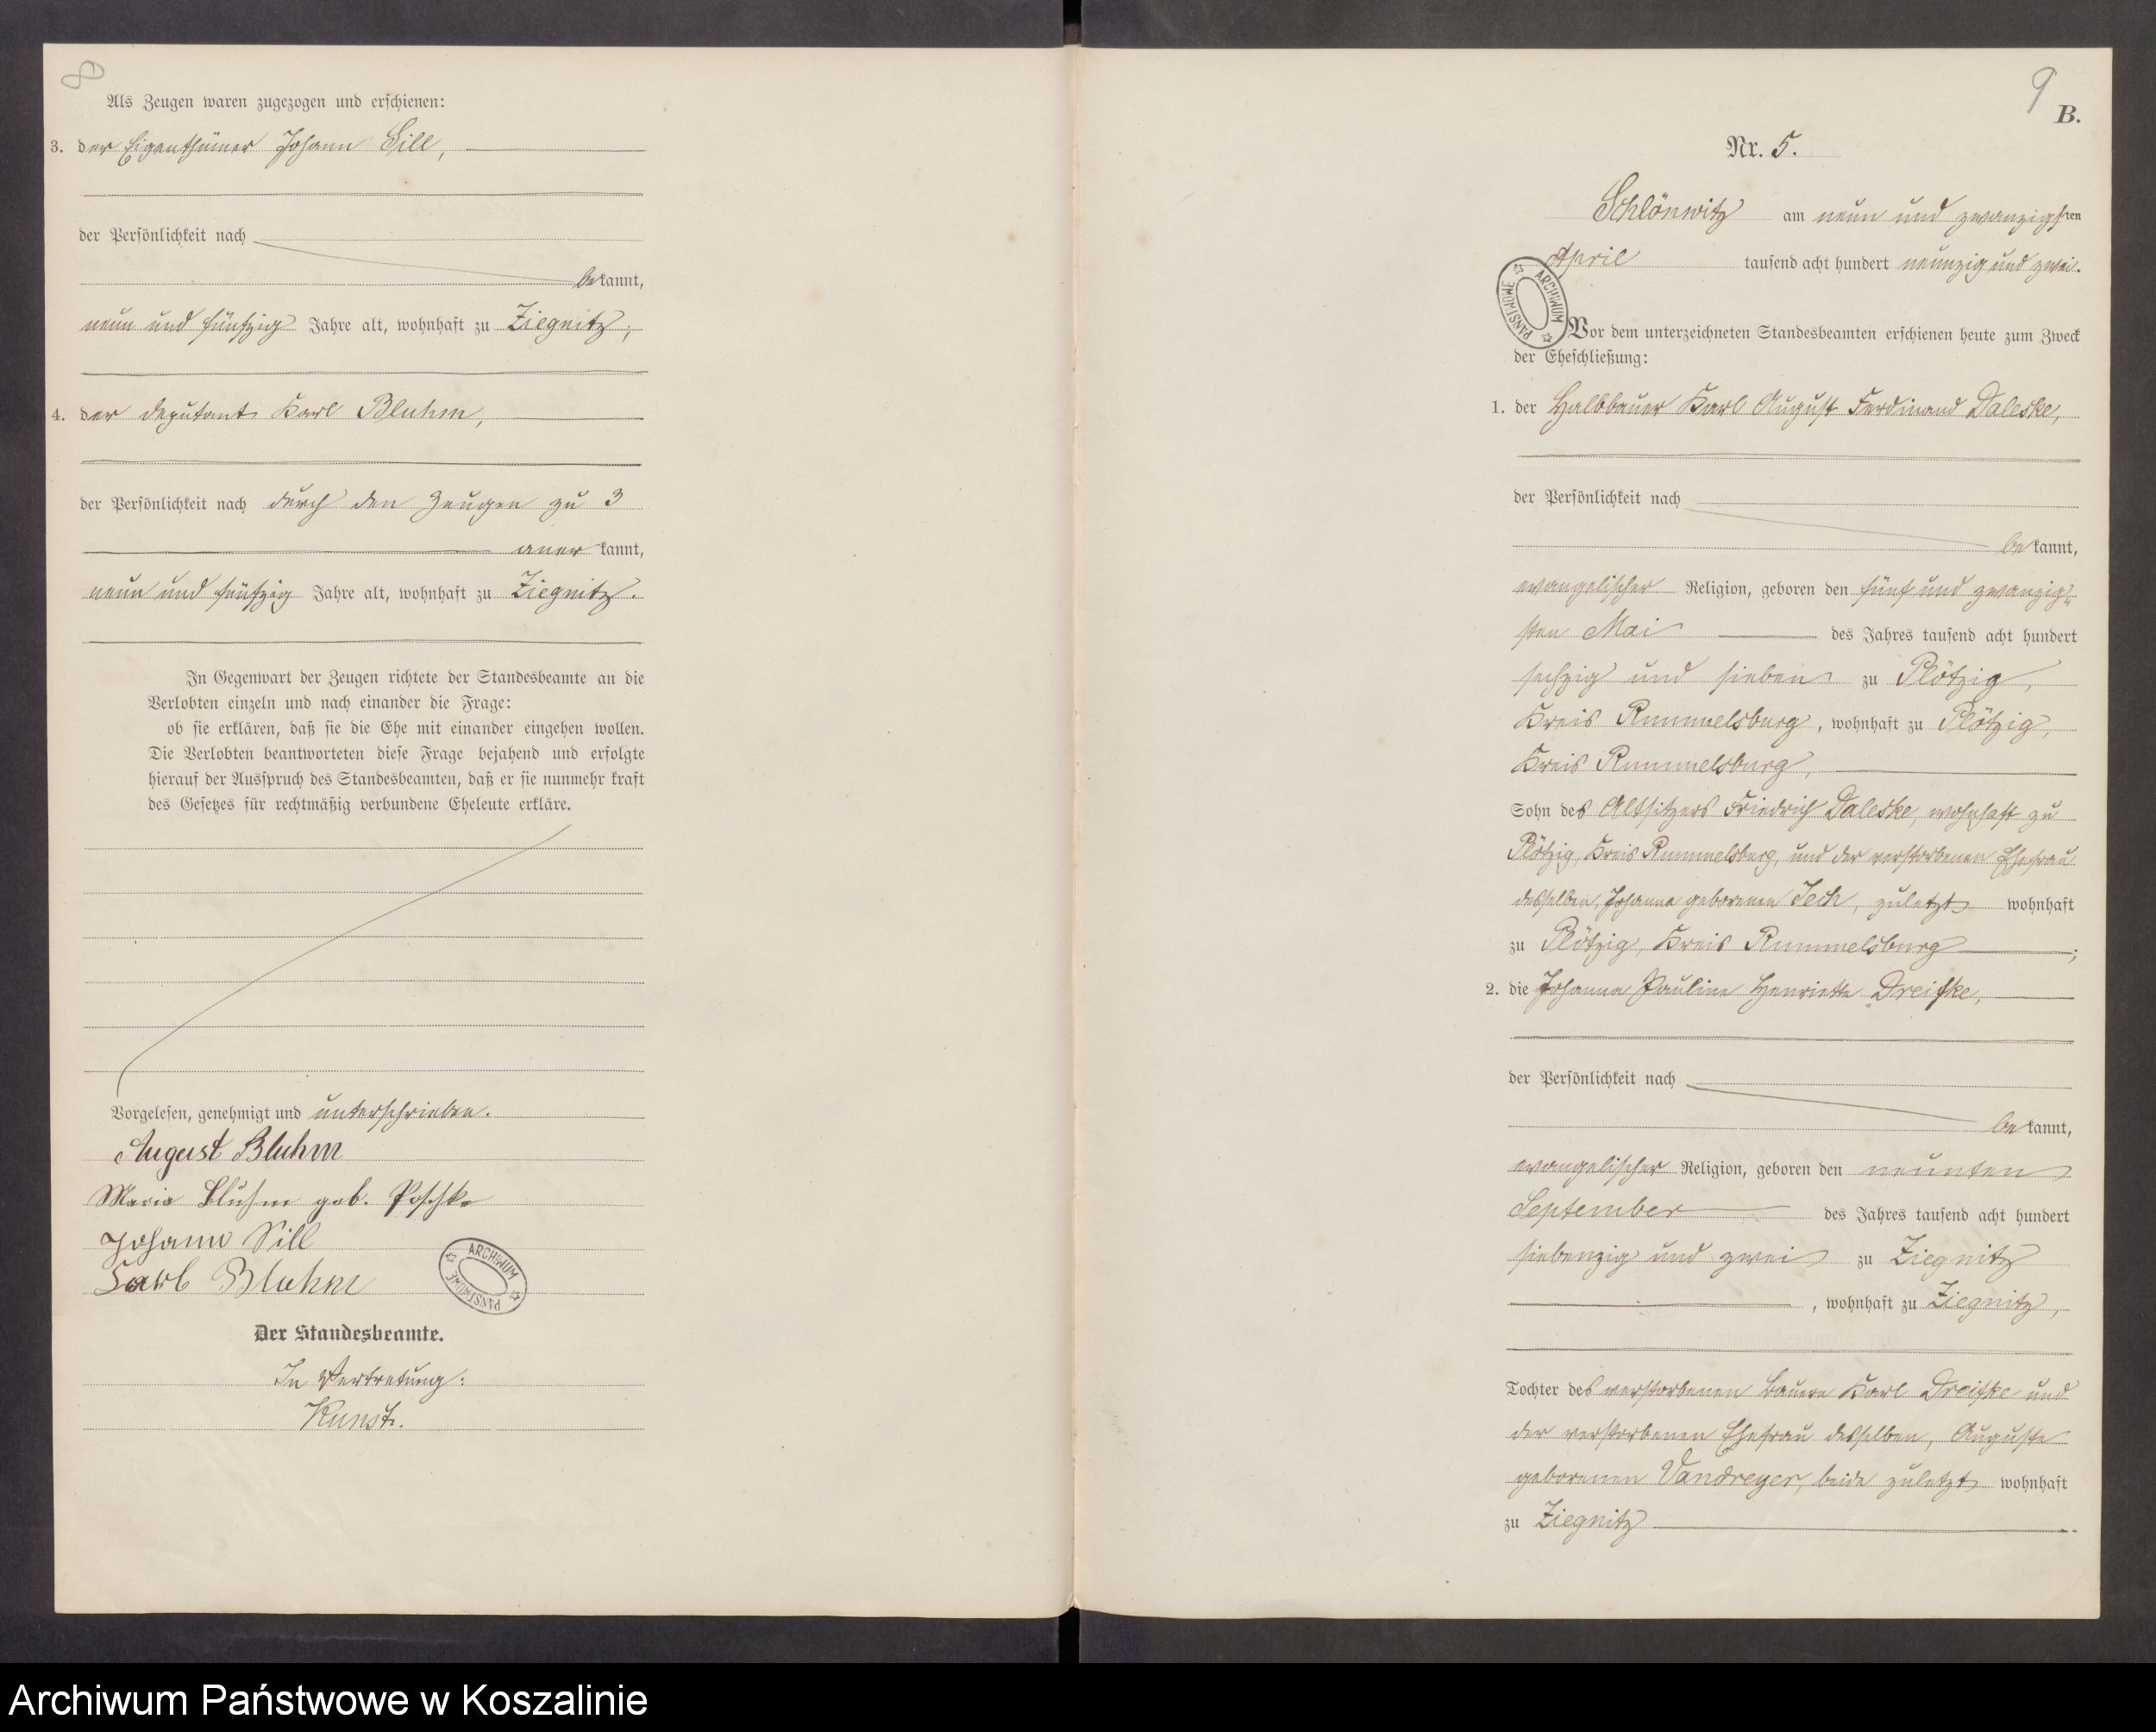 8
Als Zeugen waren zugezogen und erschienen:
3. der Eigenthümer Johann Sill,
der Persönlichkeit nach
bekannt,
neun und fünfzig Jahre alt, wohnhaft zu Ziegnitz;
4. der Deputant Karl Bluhm,
der Persönlichkeit nach durch den Zeugen zu 3
anerkannt,
neun und fünfzig Jahre alt, wohnhaft zu Ziegnitz.
In Gegenwart der Zeugen richtete der Standesbeamte an die
Verlobten einzeln und nach einander die Frage:
ob sie erklären, daß sie die Ehe mit einander eingehen wollen.
Die Verlobten beantworteten diese Frage bejahend und erfolgte
hierauf der Ausspruch des Standesbeamten, daß er sie nunmehr kraft
des Gesetzes für rechtmäßig verbundene Eheleute erkläre.
Vorgelesen, genehmigt und unterschrieben.
August Bluhm
Maria Bluhm geb. Poschke
Johann Sill
Karl Bluhm
ARCHIWUM PAŃSTWOWE
Der Standesbeamte.
In Vertretung:
Kunst.
9
B.
Nr. 5.
Schlönwitz am neun und zwanzigsten
April tausend acht hundert neunzig und zwei.
ARCHIWUM PAŃSTWOWE
Vor dem unterzeichneten Standesbeamten erschienen heute zum Zweck
der Eheschließung:
1. der Halbbauer Karl August Ferdinand Daleske,
der Persönlichkeit nach
bekannt,
evangelischer Religion, geboren den fünf und zwanzig-
sten Mai des Jahres tausend acht hundert
sechzig und sieben zu Plötzig,
Kreis Rummelsburg, wohnhaft zu Plötzig,
Kreis Rummelsburg,
Sohn des Altsitzers Friedrich Daleske, wohnhaft zu
Plötzig, Kreis Rummelsburg, und der verstorbenen Ehefrau
desselben, Johanna geborenen Tech, zuletzt wohnhaft
zu Plötzig, Kreis Rummelsburg;
2. die Johanna Pauline Henriette Dreifke,
der Persönlichkeit nach
bekannt,
evangelischer Religion, geboren den neunten
September des Jahres tausend acht hundert
siebenzig und zwei zu Ziegnitz
, wohnhaft zu Ziegnitz,
Tochter des verstorbenen Bauern Karl Dreifke und
der verstorbenen Ehefrau desselben, Auguste
geborenen Vandreyer, beide zuletzt wohnhaft
zu Ziegnitz.
Archiwum Państwowe w Koszalinie